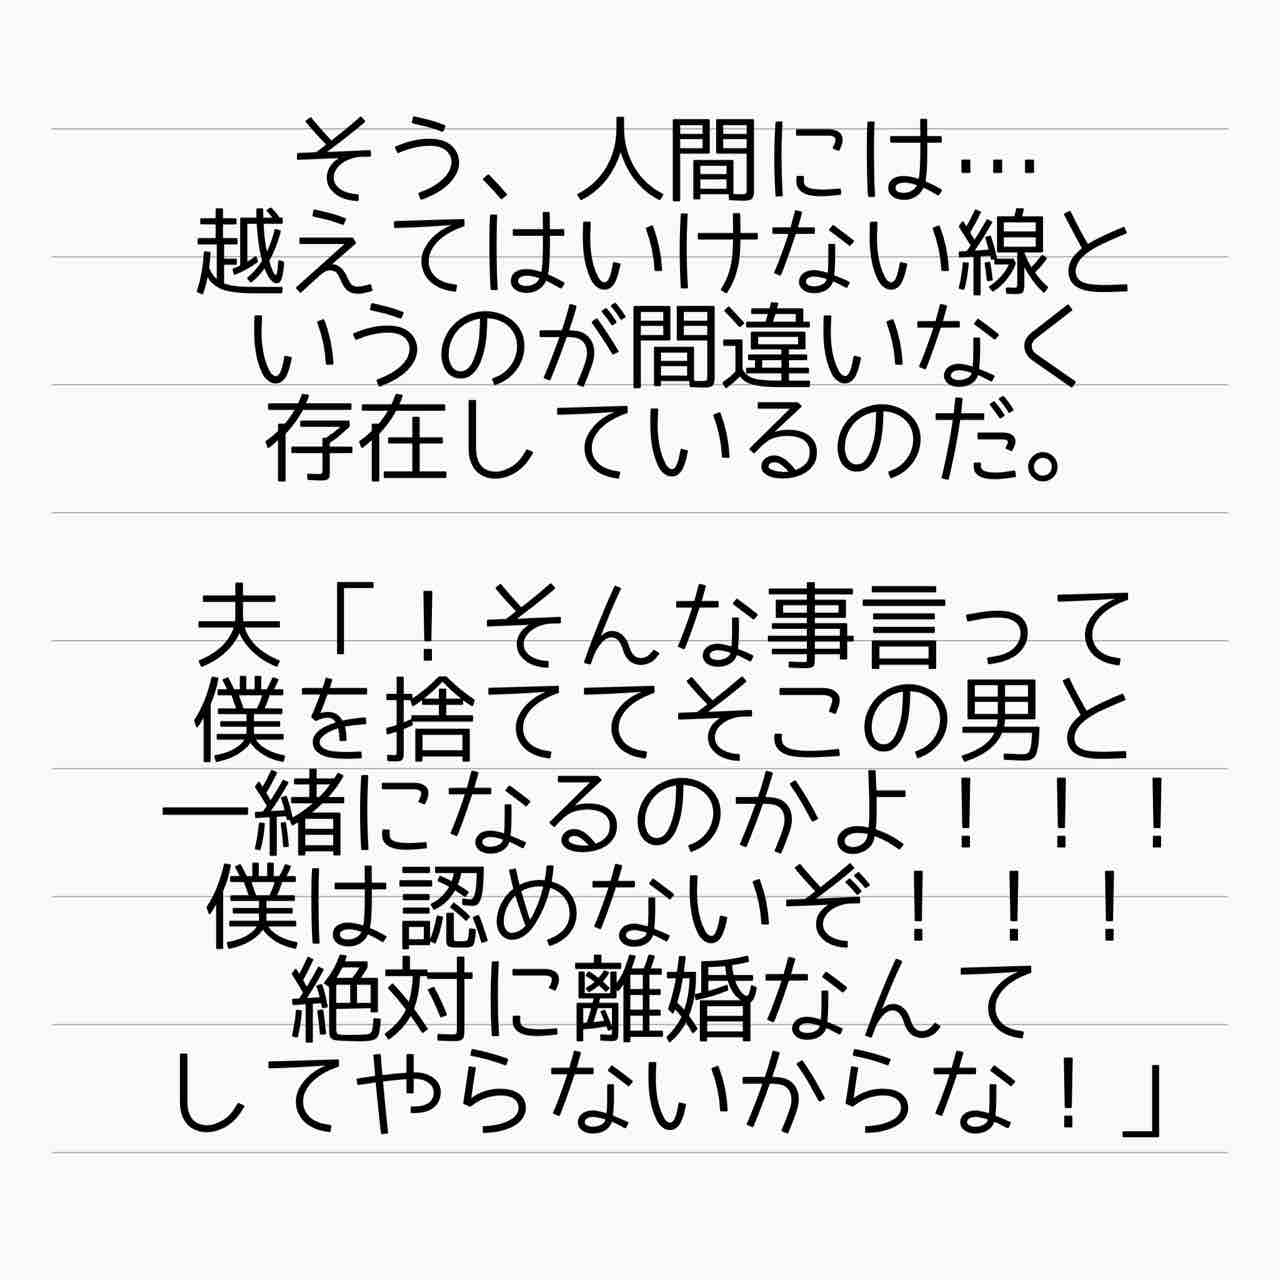 そう、人間には…
越えてはいけない線と
いうのが間違いなく
存在しているのだ。
夫「！そんな事言って
僕を捨ててそこの男と
一緒になるのかよ！！！
僕は認めないぞ！！！
絶対に離婚なんて
してやらないからな！」